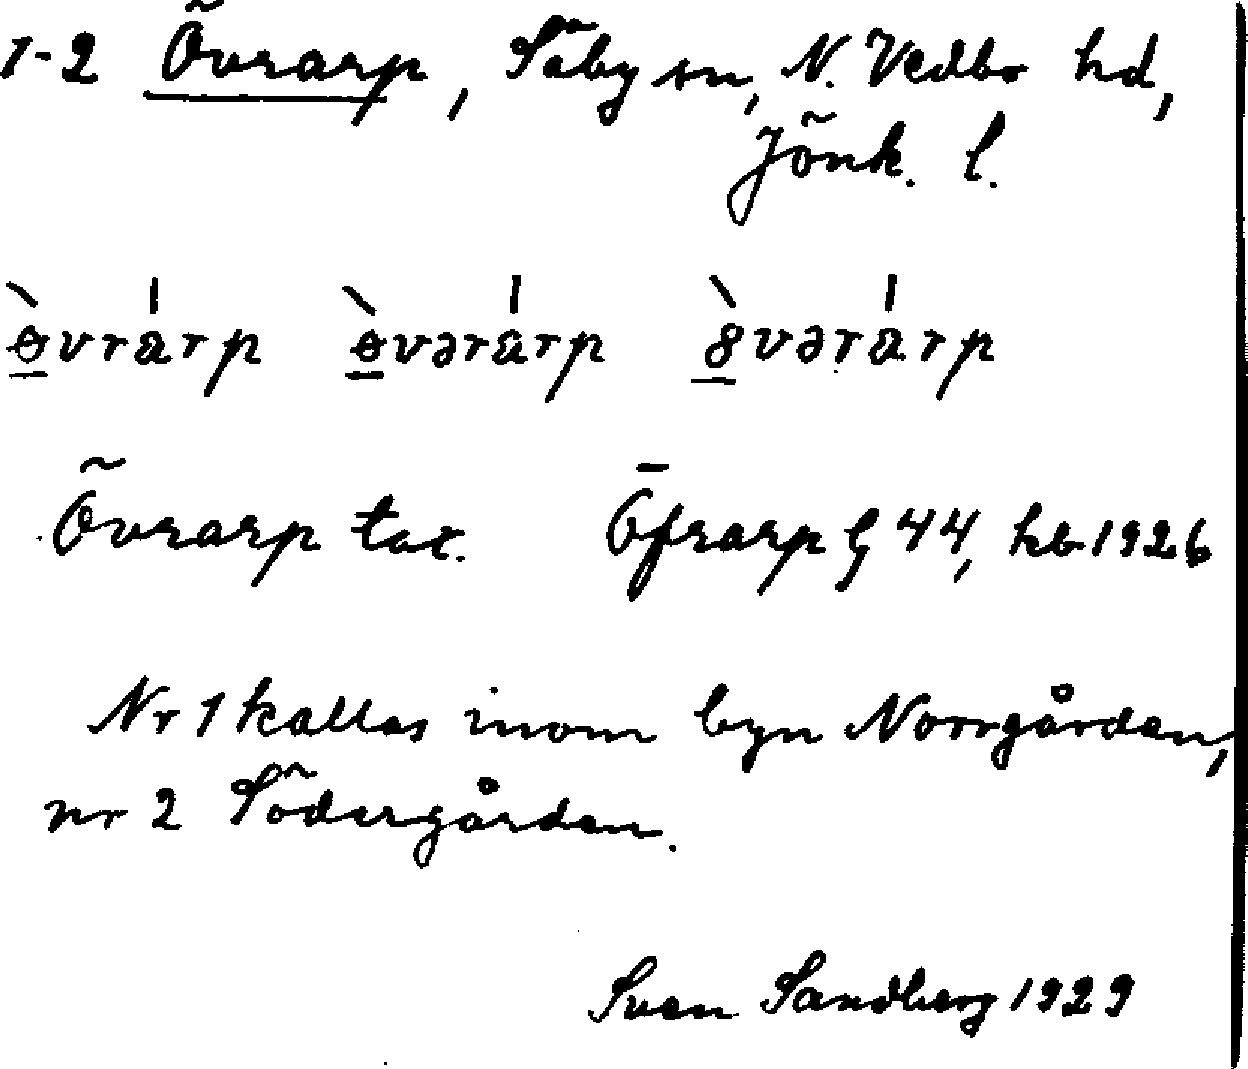 1-2 Övrarp, Säby sn, N. Vedbo hd,
Jönk. l.
ɵ̀vrárp ɵ̀vərárp 8̀vərárp
Övrarp tax. Öfrarp ɧ 44, hb 1926
Nr 1 kallas inom byn Norrgården,
nr 2 Södergården.
Sven Sandberg 1929